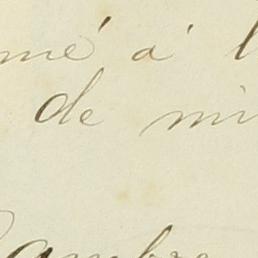 mé á l
de mi
ambre